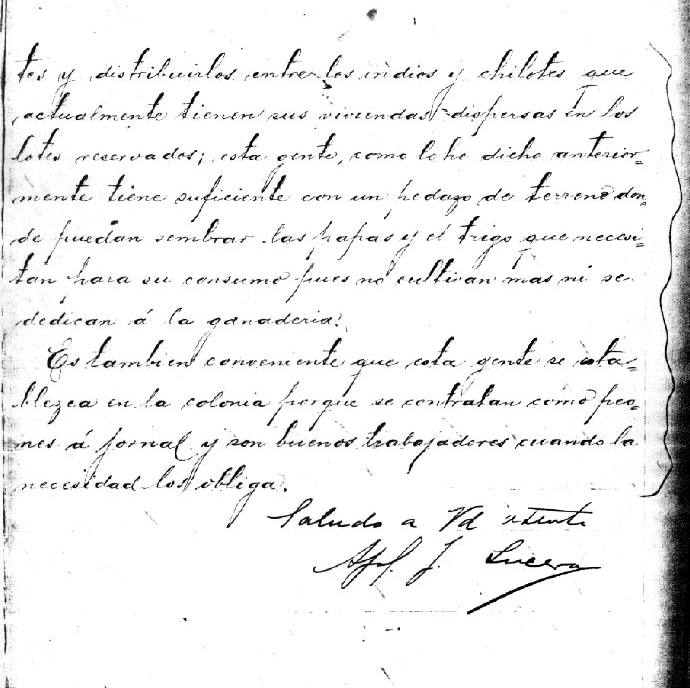 tos y distribuirlos entre los indios y chilotes que
actualmente tienen sus viviendas dispersas en los
lotes reservados; esta gente, como lo he dicho anterior-
mente tiene suficiente con un pedazo de terreno don-
de puedan sembrar las papas y el trigo que necesi-
tan para su consumo pues no cultivan mas ni se
dedican á la ganaderia.
Es tambien conveniente que esta gente se esta-
blezca en la colonia porque se contratan como peo-
nes á jornal y son buenos trabajadores cuando la
necesidad los obliga.
Saludo a Vd atente
J. Lucero